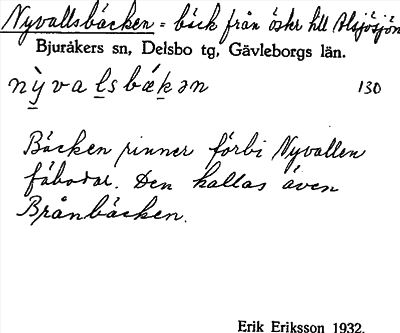 Nyvallsbäcken = bäck från öster till Alsjösjön
Bjuråkers sn, Delsbo tg, Gävleborgs län.
nỳvaḷsbǽḵən 130
Bäcken rinner förbi Nyvallen
fäbodar. Den kallas även
Brånbäcken.
Erik Eriksson 1932.